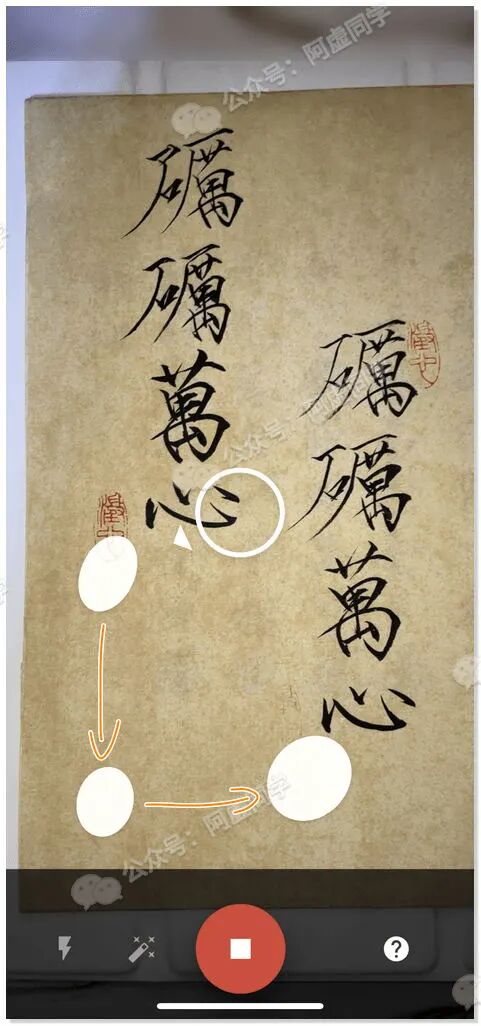 公众号：阿虚同学
礪礪萬心
礪礪萬心
公众号：阿虚同学
公众号：阿虚同学